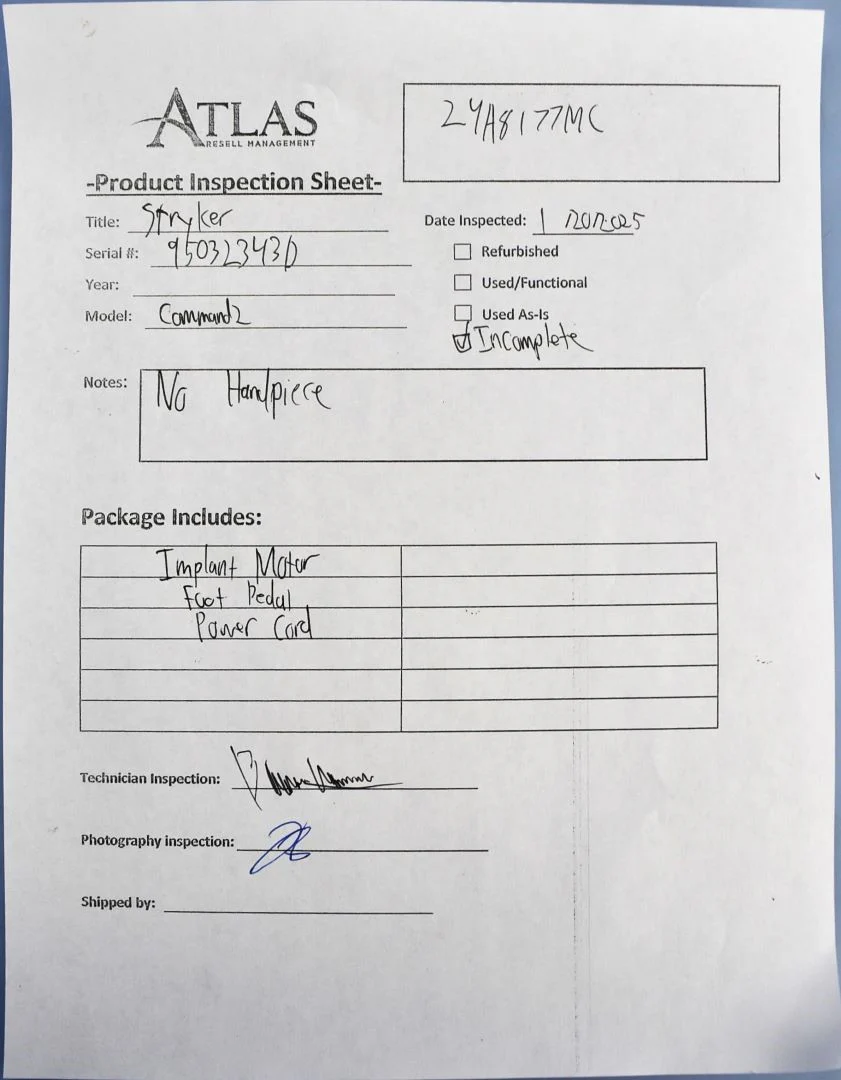 ATLAS
RESELL MANAGEMENT
24A8177MC
-Product Inspection Sheet-
Title: Stryker
Serial #: 950323430
Year:
Model: Command2
Date Inspected:
Refurbished
Used/Functional
Used As-Is
Incomplete
Notes: No Handpiece
Package Includes:
Implant Motor
Foot Pedal
Power Cord
Technician Inspection:
Photography inspection:
Shipped by: